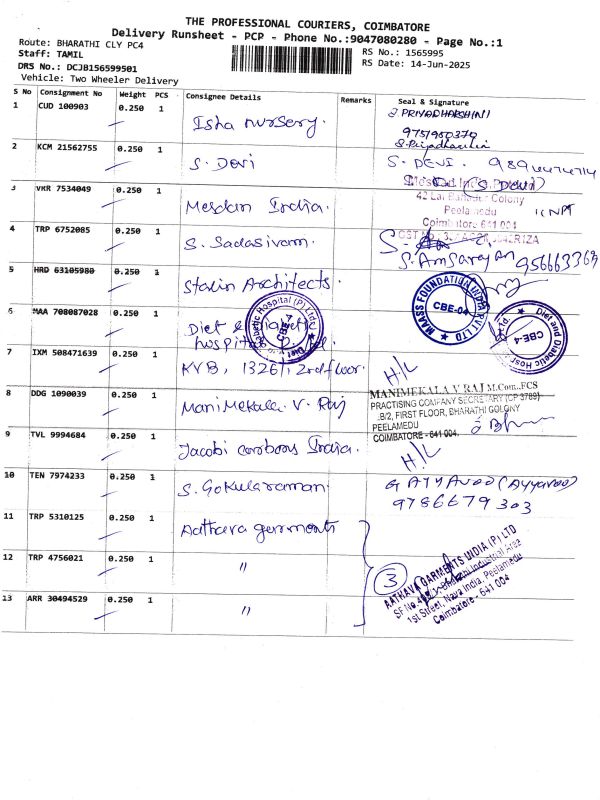 THE PROFESSIONAL COURIERS, COIMBATORE
Delivery Runsheet - PCP - Phone No.:9047080280 - Page No.:1
Route: BHARATHI CLY PC4
Staff: TAMIL
DRS No.: DCJB156599501
Vehicle: Two Wheeler Delivery
RS No.: 1565995
RS Date: 14-Jun-2025
S No Consignment No Weight PCS Consignee Details Remarks Seal & Signature
1 CUD 100903 0.250 1 Isha nursery. S.PRIYADHARSHINI
9751980370
S.Priyadharshini
2 KCM 21562755 0.250 1 S. Devi S. DEVI.
S. D (S. Devi)
3 VKR 7534049 0.250 1 Mesdan India.
Mesdan India
42 Lal Bahadur Colony
Peelamedu
Coimbatore 641 004
4 TRP 6752085 0.250 1 S. Sadasivam.
956663369
5 HRD 63105980 0.250 1 Stalin Architects.
MAASS FOUNDATION INDIA PVT LTD
CBE-04
6 MAA 708087028 0.250 1 Diet & Diabetic
hospital
Diabetic Hospital (P) Ltd
Diet and Diabetic Hos
CBE-4
7 IXM 508471639 0.250 1 KVB, 1326/1, 2nd floor. H/L
8 DDG 1090039 0.250 1 Manimekala. V. Raj
MANIMEKALA V RAJ M.Com.,FCS
PRACTISING COMPANY SECRETARY (CP 3789)
.B/2, FIRST FLOOR, BHARATHI COLONY
PEELAMEDU
COIMBATORE - 641 004.
9 TVL 9994684 0.250 1 Jacobi carbons India. H/L
10 TEN 7974233 0.250 1 S. Gokularaman. GAYYAVOO (Ayyavoo)
9786679303
11 TRP 5310125 0.250 1 Aathava garments
12 TRP 4756021 0.250 1 "
13 ARR 30494529 0.250 1 "
3
AATHAVA GARMENTS INDIA (P) LTD
1st Street, Nava India, Peelamedu
Coimbatore - 641 004